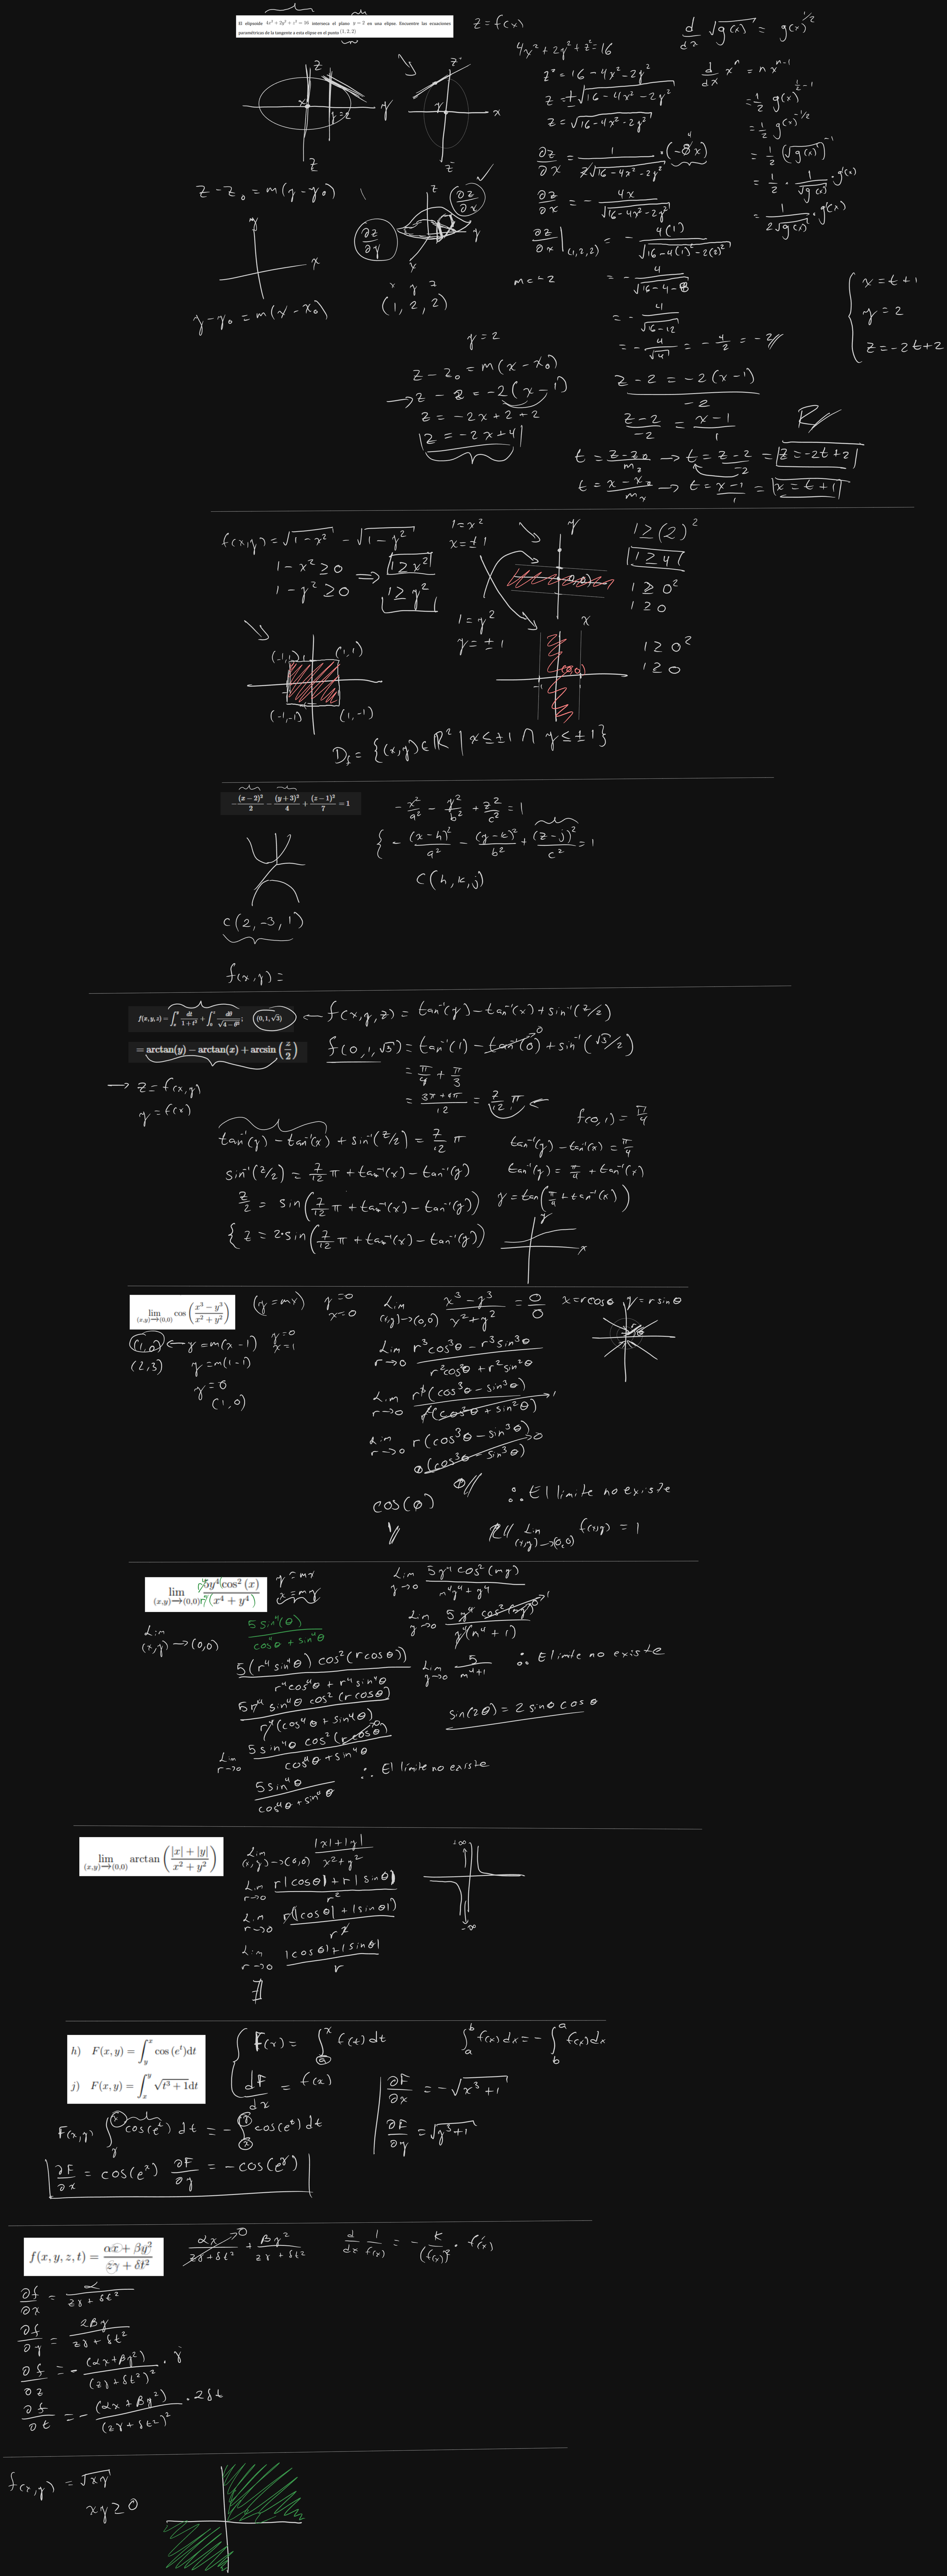 El elipsoide 4x² + 2y² + z² = 16 interseca el plano y = 2 en una elipse. Encuentre las ecuaciones
paramétricas de la tangente a esta elipse en el punto (1, 2, 2)
z = f(x)
4x² + 2y² + z² = 16
z² = 16 - 4x² - 2y²
z = ±√(16 - 4x² - 2y²)
z = √(16 - 4x² - 2y²)
∂z/∂x = 1/(2√(16 - 4x² - 2y²)) · (-8x)
4
∂z/∂x = - 4x/√(16 - 4x² - 2y²)
∂z/∂x |(1,2,2) = - 4(1)/√(16 - 4(1)² - 2(2)²)
m = -2
= - 4/√(16 - 4 - 8)
= - 4/√(16 - 12)
= - 4/√4 = - 4/2 = -2
d/dx √g(x) = g(x)^(1/2)
d/dx x^n = n x^(n-1)
= 1/2 g(x)^(1/2 - 1)
= 1/2 g(x)^(-1/2)
= 1/2 (√g(x))^(-1)
= 1/2 · 1/√g(x) · g'(x)
= 1/(2√g(x)) · g'(x)
z
x
y
y=2
z
z
y
x
z
z - z₀ = m(y - y₀)
y
x
y - y₀ = m(x - x₀)
∂z/∂x
∂z/∂y
z
y
x
x y z
(1, 2, 2)
y = 2
z - z₀ = m(x - x₀)
z - 2 = -2(x - 1)
z = -2x + 2 + 2
z = -2x + 4
z - 2 = -2(x - 1)
-2
(z - 2)/-2 = (x - 1)/1
R
t = (z - z₀)/m_z → t = (z - 2)/-2 = z = -2t + 2
t = (x - x₀)/m_x → t = (x - 1)/1 = x = t + 1
x = t + 1
y = 2
z = -2t + 2
f(x,y) = √(1 - x²) - √(1 - y²)
1 - x² ≥ 0 ⇒ 1 ≥ x²
1 - y² ≥ 0 1 ≥ y²
1 = x²
x = ±1
1 = y²
y = ±1
y
(0,0)
x
(0,0)
-1 1
1 ≥ (2)²
1 ≥ 4
1 ≥ 0²
1 ≥ 0
1 ≥ 0²
1 ≥ 0
(-1,1) (1,1)
(-1,-1) (1,-1)
D_f = {(x,y) ∈ ℝ² | x ≤ ±1 ∩ y ≤ ±1}
- (x-2)²/2 - (y+3)²/4 + (z-1)²/7 = 1
- x²/a² - y²/b² + z²/c² = 1
- (x-h)²/a² - (y-k)²/b² + (z-j)²/c² = 1
C(h, k, j)
C(2, -3, 1)
f(x,y) =
f(x,y,z) = ∫_x^y dt/(1+t²) + ∫_0^z dθ/√(4-θ²); (0,1,√3)
= arctan(y) - arctan(x) + arcsin(z/2)
← f(x,y,z) = tan⁻¹(y) - tan⁻¹(x) + sin⁻¹(z/2)
f(0,1,√3) = tan⁻¹(1) - tan⁻¹(0) + sin⁻¹(√3/2)
0
= π/4 + π/3
= (3π + 4π)/12 = 7/12 π ←
→ z = f(x,y)
y = f(x)
tan⁻¹(y) - tan⁻¹(x) + sin⁻¹(z/2) = 7/12 π
sin⁻¹(z/2) = 7/12 π + tan⁻¹(x) - tan⁻¹(y)
z/2 = sin(7/12 π + tan⁻¹(x) - tan⁻¹(y))
z = 2·sin(7/12 π + tan⁻¹(x) - tan⁻¹(y))
f(0,1) = π/4
tan⁻¹(y) - tan⁻¹(x) = π/4
tan⁻¹(y) = π/4 + tan⁻¹(x)
y = tan(π/4 + tan⁻¹(x))
y
x
lim (x,y)→(0,0) cos((x³ - y³)/(x² + y²))
(y = mx)
y = 0
x = 0
(1,0) ← y = m(x - 1)
y = 0
x = 1
(2,3) y = m(1-1)
y = 0
(1,0)
Lim (x,y)→(0,0) (x³ - y³)/(x² + y²) = 0/0
x = r cosθ y = r sinθ
Lim r→0 (r³cos³θ - r³sin³θ)/(r²cos²θ + r²sin²θ)
Lim r→0 r³(cos³θ - sin³θ)/r²(cos²θ + sin²θ) 1
Lim r→0 r(cos³θ - sin³θ)
0(cos³θ - sin³θ) 0
0
cos(0)
1
∴ El limite no existe
R// Lim (x,y)→(0,0) f(x,y) = 1
lim (x,y)→(0,0) 5y⁴cos²(x)/(x⁴ + y⁴)
y = mx
x = my
Lim (x,y)→(0,0)
5 sin⁴(θ)/(cos⁴θ + sin⁴θ)
5(r⁴sin⁴θ) cos²(r cosθ))/(r⁴cos⁴θ + r⁴sin⁴θ)
5r⁴ sin⁴θ cos²(r cosθ)/r⁴(cos⁴θ + sin⁴θ)
Lim r→0 5 sin⁴θ cos²(r cosθ)/(cos⁴θ + sin⁴θ)
5 sin⁴θ/(cos⁴θ + sin⁴θ)
∴ El límite no existe
Lim y→0 5y⁴ cos²(my)/(m⁴y⁴ + y⁴)
Lim y→0 5 y⁴ cos²(my)/y⁴(m⁴ + 1) 1
Lim y→0 5/(m⁴+1)
∴ El limite no existe
sin(2θ) = 2 sinθ cosθ
lim (x,y)→(0,0) arctan((|x| + |y|)/(x² + y²))
Lim (x,y)→(0,0) (|x| + |y|)/(x² + y²)
Lim r→0 (r|cosθ| + r|sinθ|)/r²
Lim r→0 r(|cosθ| + |sinθ|)/r²
Lim r→0 (|cosθ| + |sinθ|)/r
∄
+∞
-∞
h) F(x,y) = ∫_y^x cos(e^t)dt
j) F(x,y) = ∫_x^y √(t³ + 1)dt
F(x) = ∫_a^x f(t) dt
dF/dx = f(x)
∫_a^b f(x) dx = - ∫_b^a f(x) dx
∂F/∂x = -√(x³ + 1)
∂F/∂y = √(y³ + 1)
F(x,y) ∫_y^x cos(e^t) dt = - ∫_x^y cos(e^t) dt
∂F/∂x = cos(e^x) ∂F/∂y = -cos(e^y)
f(x,y,z,t) = (αx + βy²)/(zγ + δt²)
αx/(zγ + δt²) + βy²/(zγ + δt²)
0
d/dx 1/f(x) = - K/(f(x))² · f'(x)
∂f/∂x = α/(zγ + δt²)
∂f/∂y = 2βy/(zγ + δt²)
∂f/∂z = - (αx + βy²)/(zγ + δt²)² · γ
∂f/∂t = - (αx + βy²)/(zγ + δt²)² · 2δt
f(x,y) = √xy
xy ≥ 0